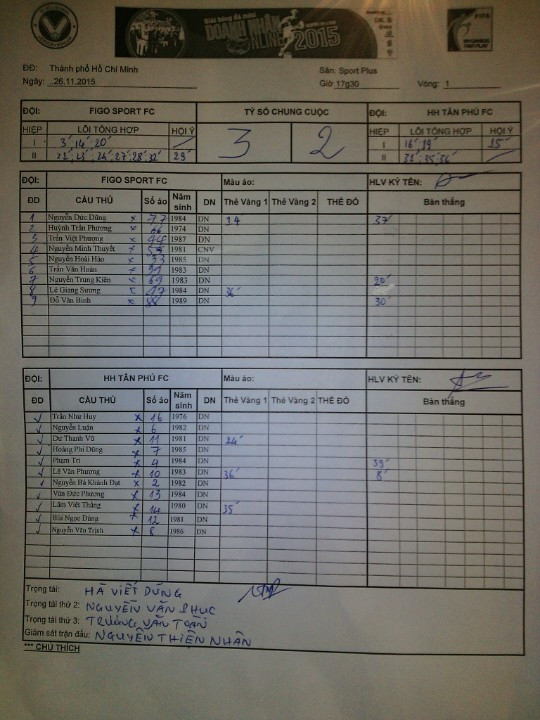 Giải bóng đá mini
DOANH NHÂN
ONLINE 2015
FIFA
ĐĐ: Thành phố Hồ Chí Minh Sân: Sport Plus
Ngày: 26.11.2015 Giờ 17g30 Vòng: 1
ĐỘI: FIGO SPORT FC TỶ SỐ CHUNG CUỘC ĐỘI: HH TÂN PHÚ FC
HIỆP LỖI TỔNG HỢP HỘI Ý 3 2 HIỆP LỖI TỔNG HỢP HỘI Ý
I 3' 14' 20' I 16' 19' 15'
II 29' II
ĐỘI: FIGO SPORT FC Màu áo: HLV KÝ TÊN:
ĐD CẦU THỦ Số áo Năm sinh DN Thẻ Vàng 1 Thẻ Vàng 2 THẺ ĐỎ Bàn thắng
1 Nguyễn Đức Dũng x 77 1984 DN 34 37'
2 Huỳnh Trần Phương x 66 1974 DN
3 Trần Việt Phương x 1987 DN
4 Nguyễn Minh Thuyết x 1981 CNV
5 Nguyễn Hoài Hảo x 33 1985 DN
6 Trần Văn Hoàn x 1983 DN
7 Nguyễn Trung Kiên x 69 1983 DN 20'
8 Lê Giang Sương x 17 1984 DN 36'
9 Đỗ Văn Bình x 88 1989 DN 30'
ĐỘI: HH TÂN PHÚ FC Màu áo: HLV KÝ TÊN:
ĐD CẦU THỦ Số áo Năm sinh DN Thẻ Vàng 1 Thẻ Vàng 2 THẺ ĐỎ Bàn thắng
✓ Trần Như Huy x 16 1976 DN
✓ Nguyễn Luận x 6 1982 DN
✓ Dư Thanh Vũ x 11 1981 DN 24'
✓ Hoàng Phi Dũng x 7 1985 DN
✓ Phạm Trí x 4 1984 DN 39'
✓ Lê Văn Phương x 10 1983 DN 36' 8'
✓ Nguyễn Bá Khánh Đạt x 2 1982 DN
✓ Văn Đức Phương x 13 1984 DN
✓ Lâm Việt Thắng x 14 1980 DN 35'
✓ Bùi Ngọc Dũng x 12 1981 DN
✓ Nguyễn Văn Trinh x 8 1986 DN
Trọng tài: HÀ VIẾT DŨNG
Trọng tài thứ 2: NGUYỄN VĂN PHÚC
Trọng tài thứ 3: TRƯƠNG VĂN TOÀN
Giám sát trận đấu: NGUYỄN THIỆN NHÂN
*** CHÚ THÍCH